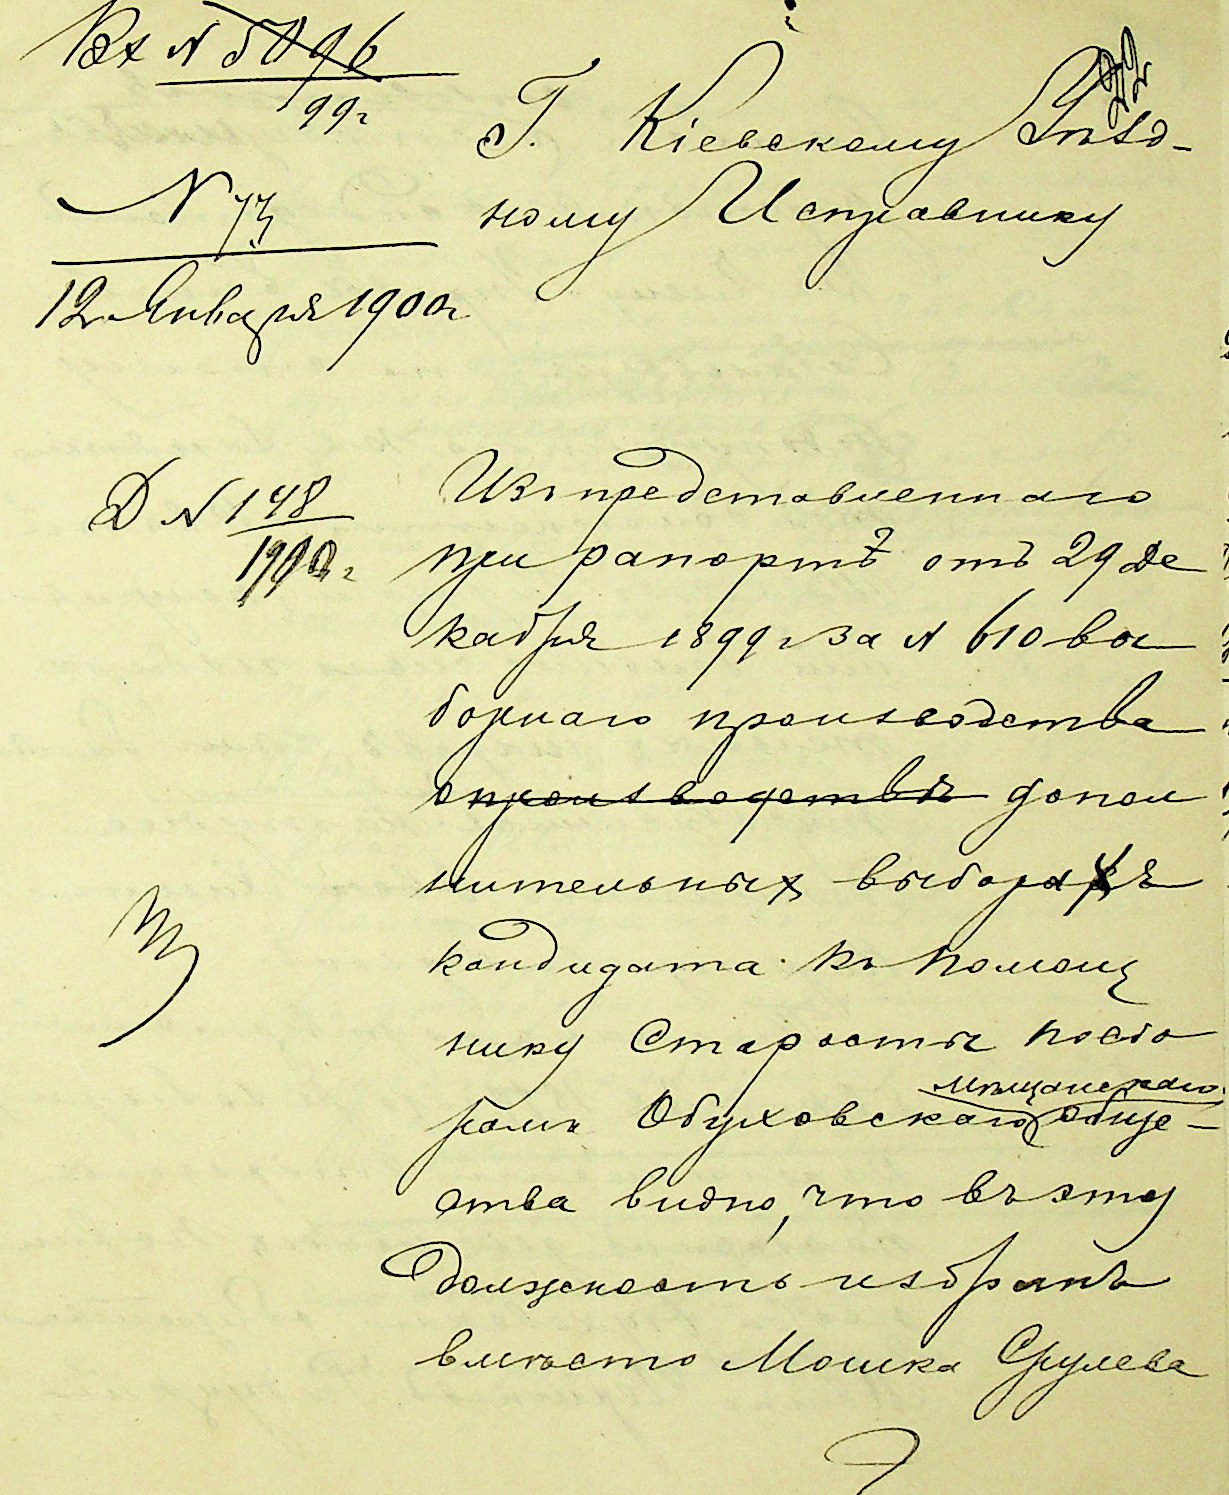 Вх N 5096
99 г
N 73
12 Января 1900 г
22
Г. Кіевскому Уѣзд-
ному Исправнику
Д N 148
1900 г
Изъ представленнаго
при рапортѣ отъ 29 Де
кабря 1899 г за N 610 вы
борнаго производства
о производствѣ допол
нительныхъ выборахъ
кандидата къ помощ
нику Старосты по сбо
рамъ Обуховскаго мѣщанскаго обще-
ства видно, что въ эту
должность избранъ
вмѣсто Мошка Срулева